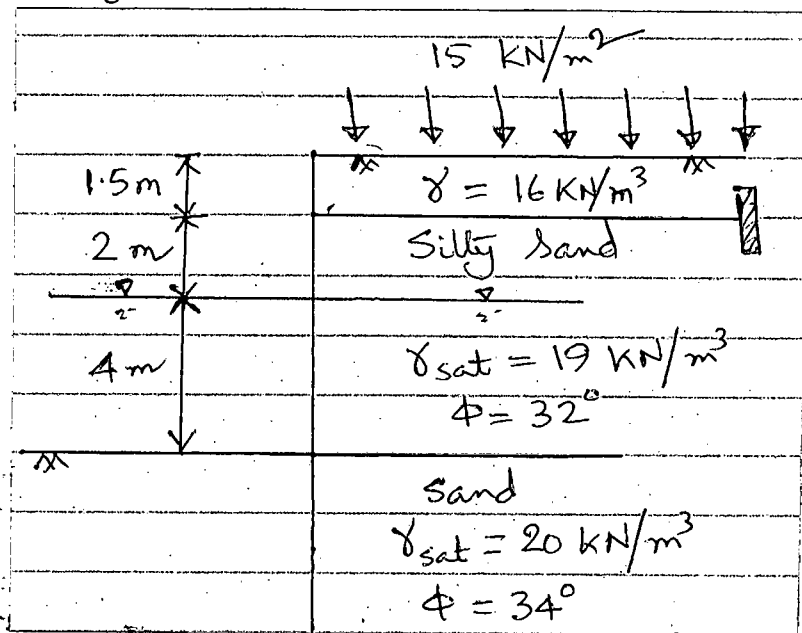 15 KN/m²
1.5m
γ = 16 KN/m³
2 m
Silty Sand
4 m
γsat = 19 KN/m³
Φ = 32°
Sand
γsat = 20 KN/m³
Φ = 34°